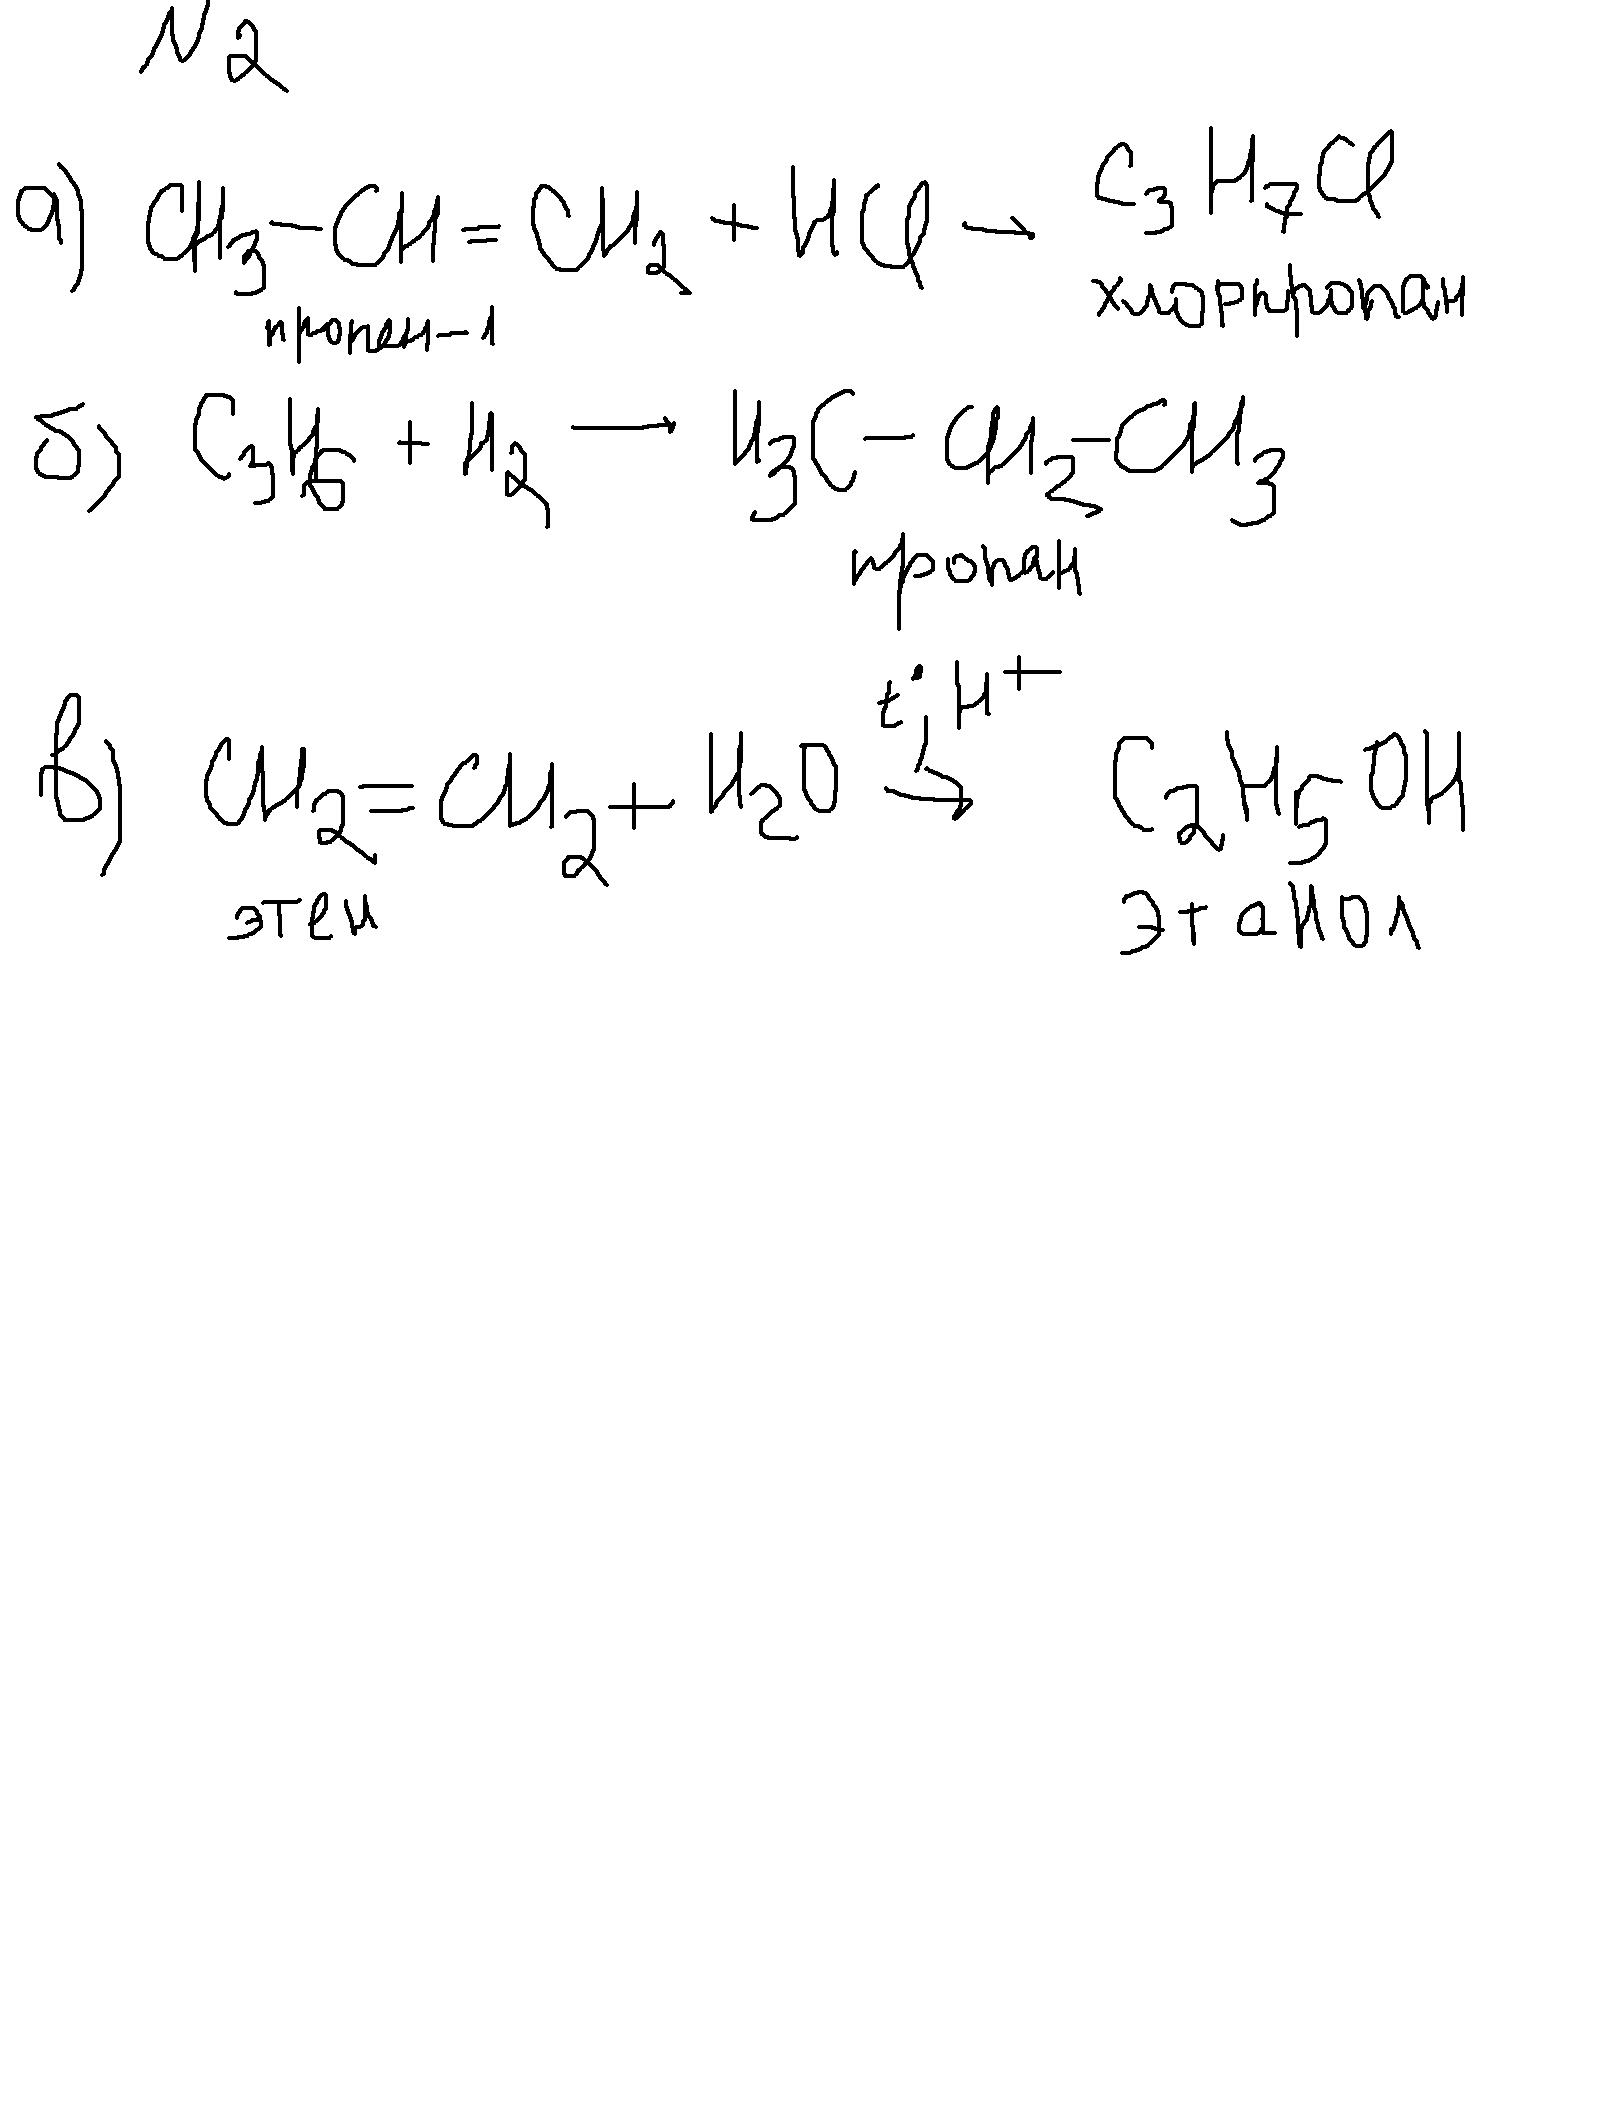 N2
а) CH₃-CH=CH₂ + HCl → C₃H₇Cl
пропен-1 хлорпропан
б) C₃H₆ + H₂ → H₃C-CH₂-CH₃
пропан
t°, H⁺
в) CH₂=CH₂ + H₂O → C₂H₅OH
этен этанол